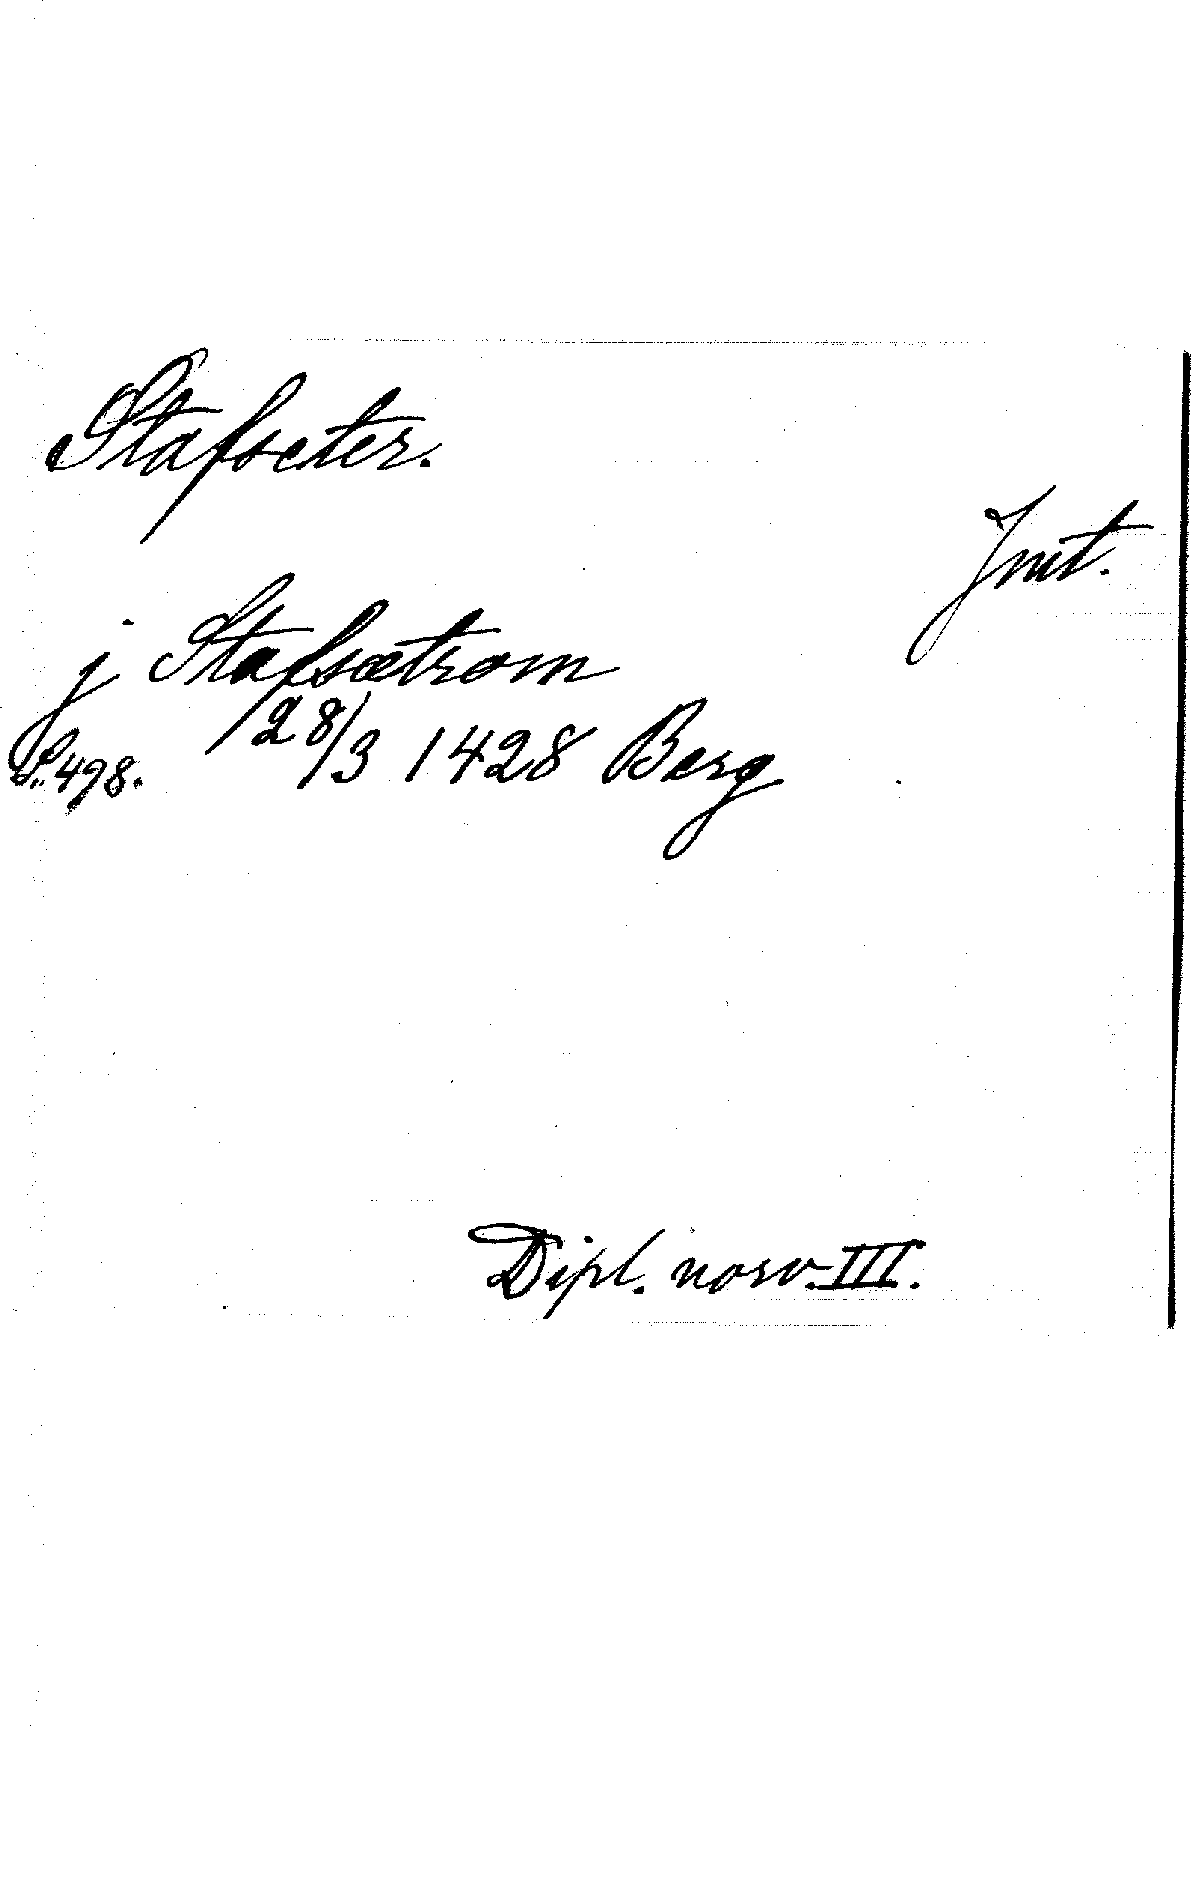 Stafseter.
Jnit.
j Stafsætrom
S. 498. 28/3 1428 Berg
Dipl. norv. III.